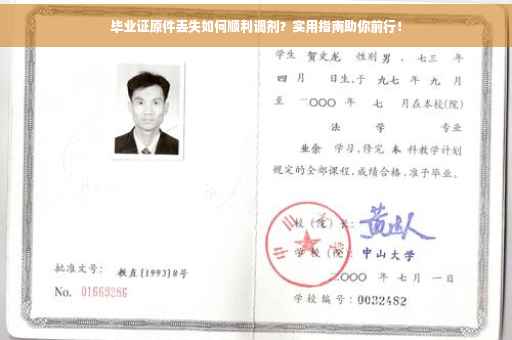 毕业证原件丢失如何顺利调剂？实用指南助你前行！
学生 贺文龙 性别 男，七三 年
四 月 日生，于 九七 年 九 月
至 二〇〇〇 年 七 月在本校(院)
法 学 专业
业余 学习，修完 本 科教学计划
规定的全部课程，成绩合格，准予毕业。
校（院）长：
学校（院）：中山大学
二〇〇〇 年 七 月 一 日
批准文号： 教直[1993]8号
No. 01669286
学校编号：0032482